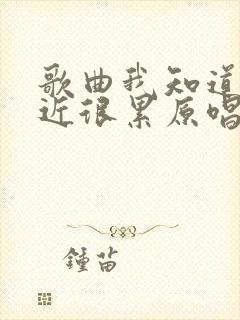 歌曲我知道
近很累原唱
鍾苗